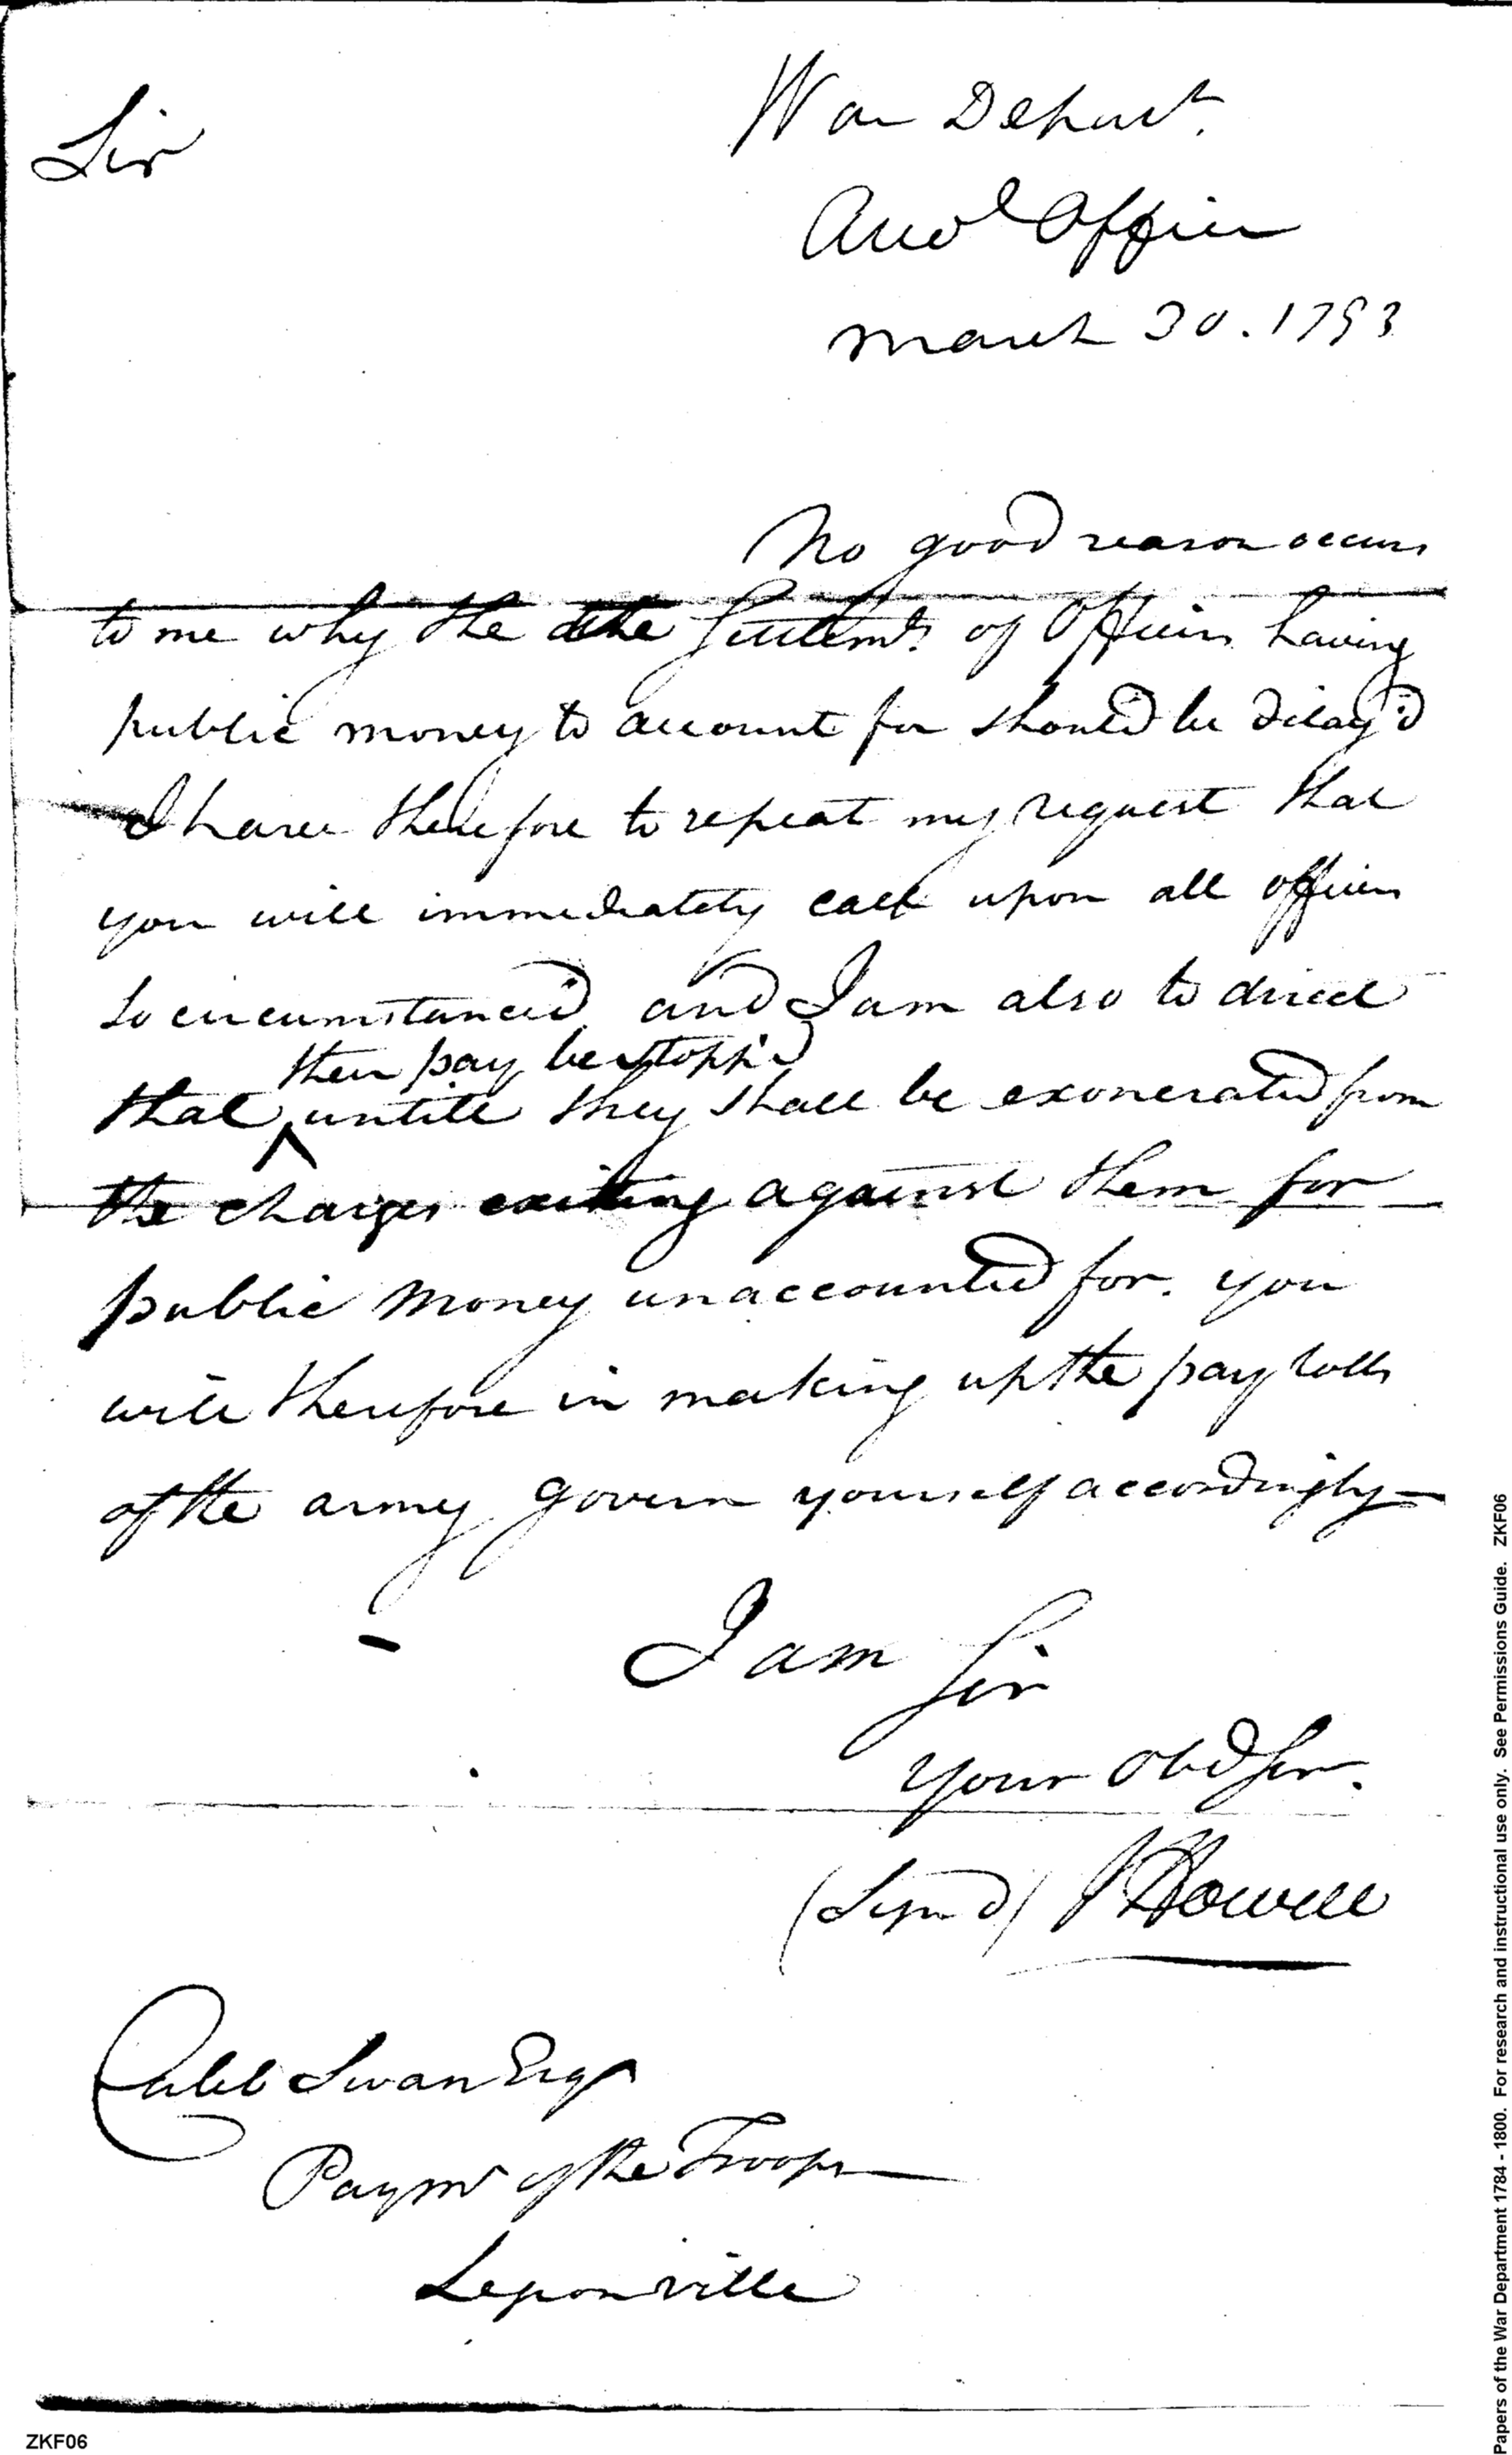 Sir
War Depart.
Acco.t Office
March 30. 1793
No good reason occurs
to me why the the Settlemts of Officers having
public money to account for should be delay'd
I have therefore to repeat my request that
you will immediately call upon all officers
so circumstanced and I am also to direct
their pay be stopp'd
that ^ untill they shall be exonerated from
the charges existing against them for
public money unaccounted for. you
will therefore in making up the pay rolls
of the army govern yourself accordingly —
I am Sir
your Obd Ser.
(Signd) J Howell
Caleb Swan Esqr
Paymr of the Troops
Legionville
ZKF06
Papers of the War Department 1784 - 1800. For research and instructional use only. See Permissions Guide. ZKF06